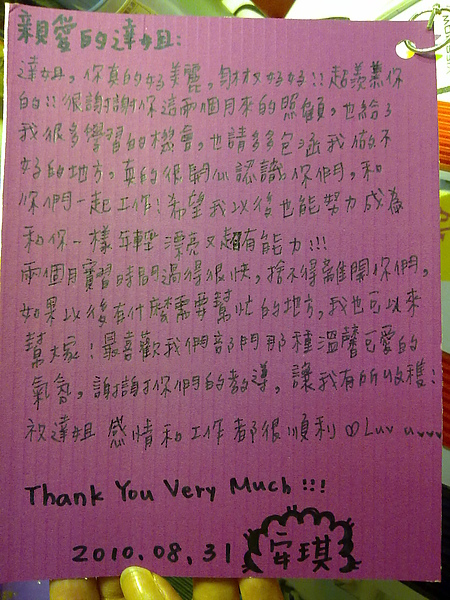 親愛的達姐:
達姐，你真的好美麗，身材又好好!!超羨慕你
的!!很謝謝你這兩個月來的照顧，也給了
我很多學習的機會，也請多多包涵我做不
好的地方，真的很開心認識你們，和
你們一起工作!希望我以後也能努力成為
和你一樣年輕漂亮又超有能力!!!
兩個月實習時間過得很快，捨不得離開你們，
如果以後有什麼需要幫忙的地方，我也可以來
幫大家!最喜歡我們部門那種溫馨可愛的
氣氛，謝謝你們的教導，讓我有所收穫!
祝達姐 感情和工作都很順利 Luv u
Thank You Very Much!!!
2010.08.31 安琪